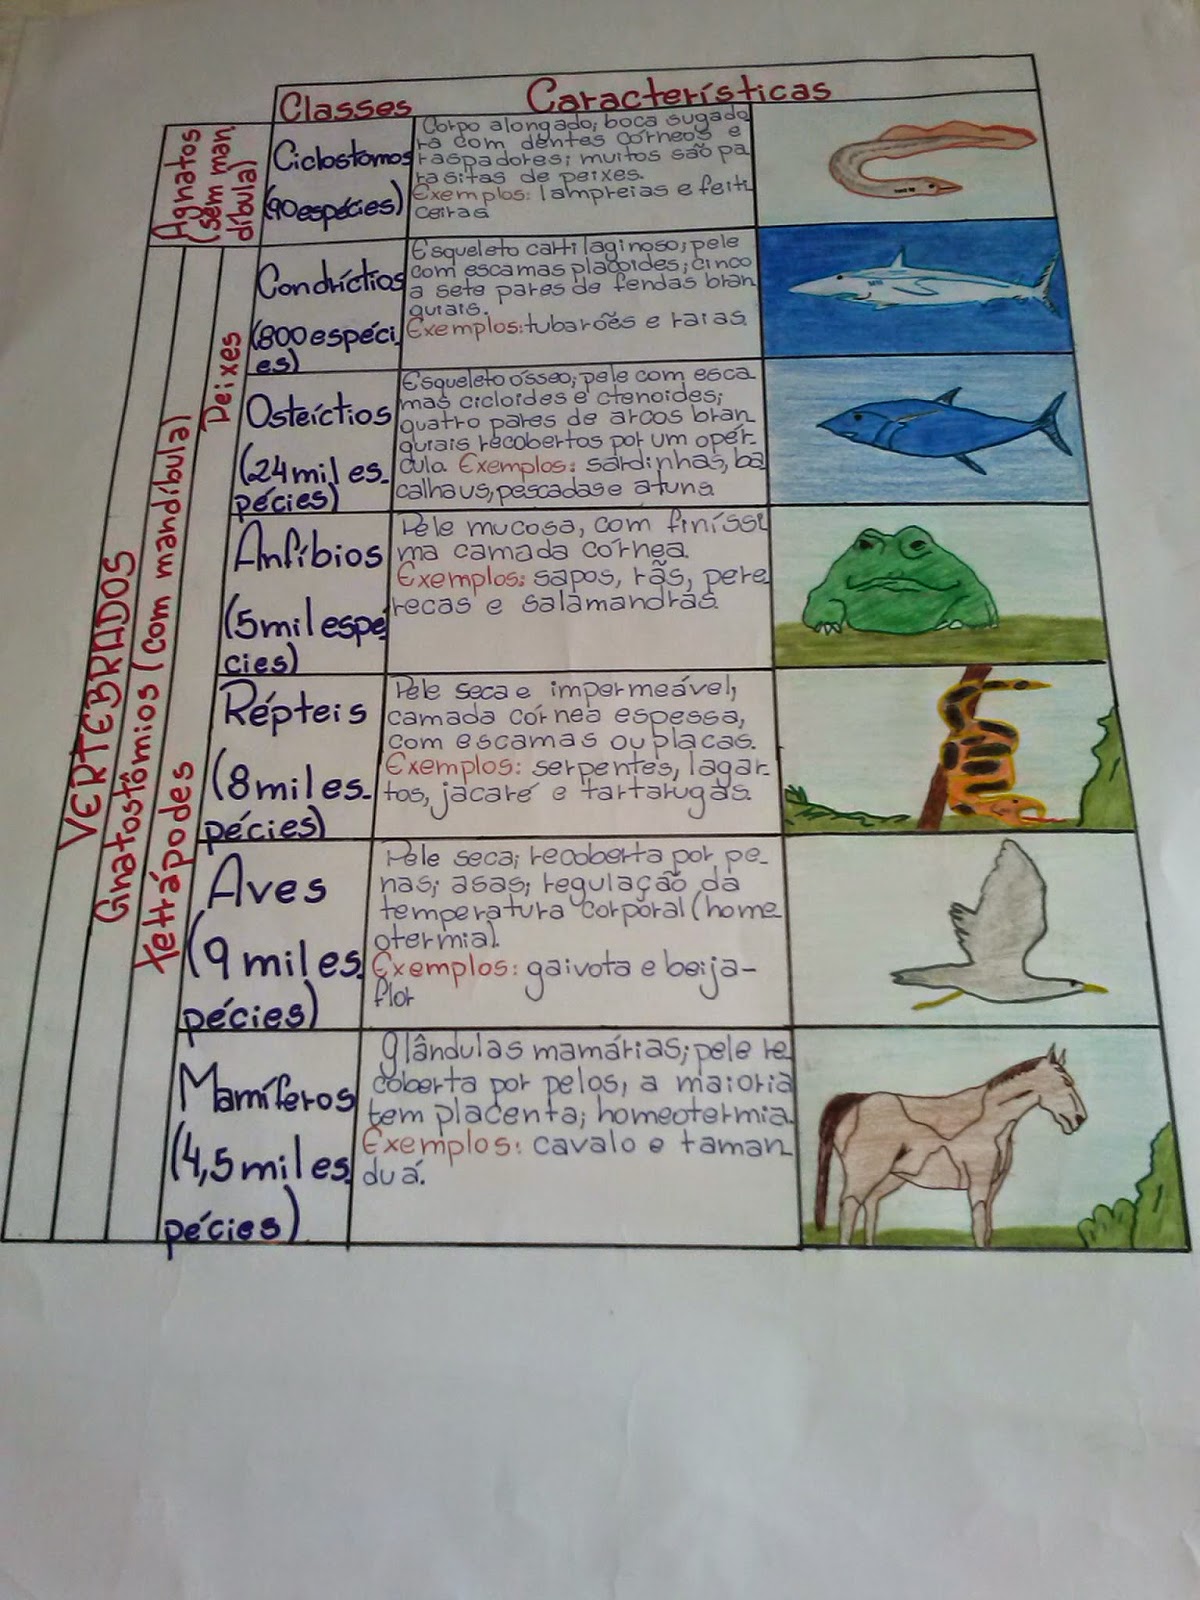 Classes
Características
Agnatos
(sem man
díbula)
Ciclostomos
(90 espécies)
Corpo alongado; boca sugado
ra com dentes córneos e
raspadores; muitos são pa
rasitas de peixes.
Exemplos: lampreias e feiti
ceiras
VERTEBRADOS
Gnatostômios (com mandíbula)
Peixes
Condríctios
(800 espéci
es)
Esqueleto cartilaginoso; pele
com escamas placoides; cinco
a sete pares de fendas bran
quiais.
Exemplos: tubarões e raias
Osteíctios
(24 mil es-
pécies)
Esqueleto ósseo; pele com esca
mas cicloides e ctenoides;
quatro pares de arcos bran
quiais recobertos por um opér-
culo. Exemplos: sardinhas, ba
calhaus, pescadas e atuns.
Tetrápodes
Anfíbios
(5 mil espé
cies)
Pele mucosa, com finíssi
ma camada córnea.
Exemplos: sapos, rãs, pere
recas e salamandras.
Répteis
(8 mil es-
pécies)
Pele seca e impermeável,
camada córnea espessa,
com escamas ou placas.
Exemplos: serpentes, lagar-
tos, jacaré e tartarugas.
Aves
(9 mil es
pécies)
Pele seca; recoberta por pe-
nas; asas; regulação da
temperatura corporal (home
otermia).
Exemplos: gaivota e beija-
flor
Mamíferos
(4,5 mil es
pécies)
Glândulas mamárias; pele re
coberta por pelos, a maioria
tem placenta; homeotermia.
Exemplos: cavalo e taman
duá.